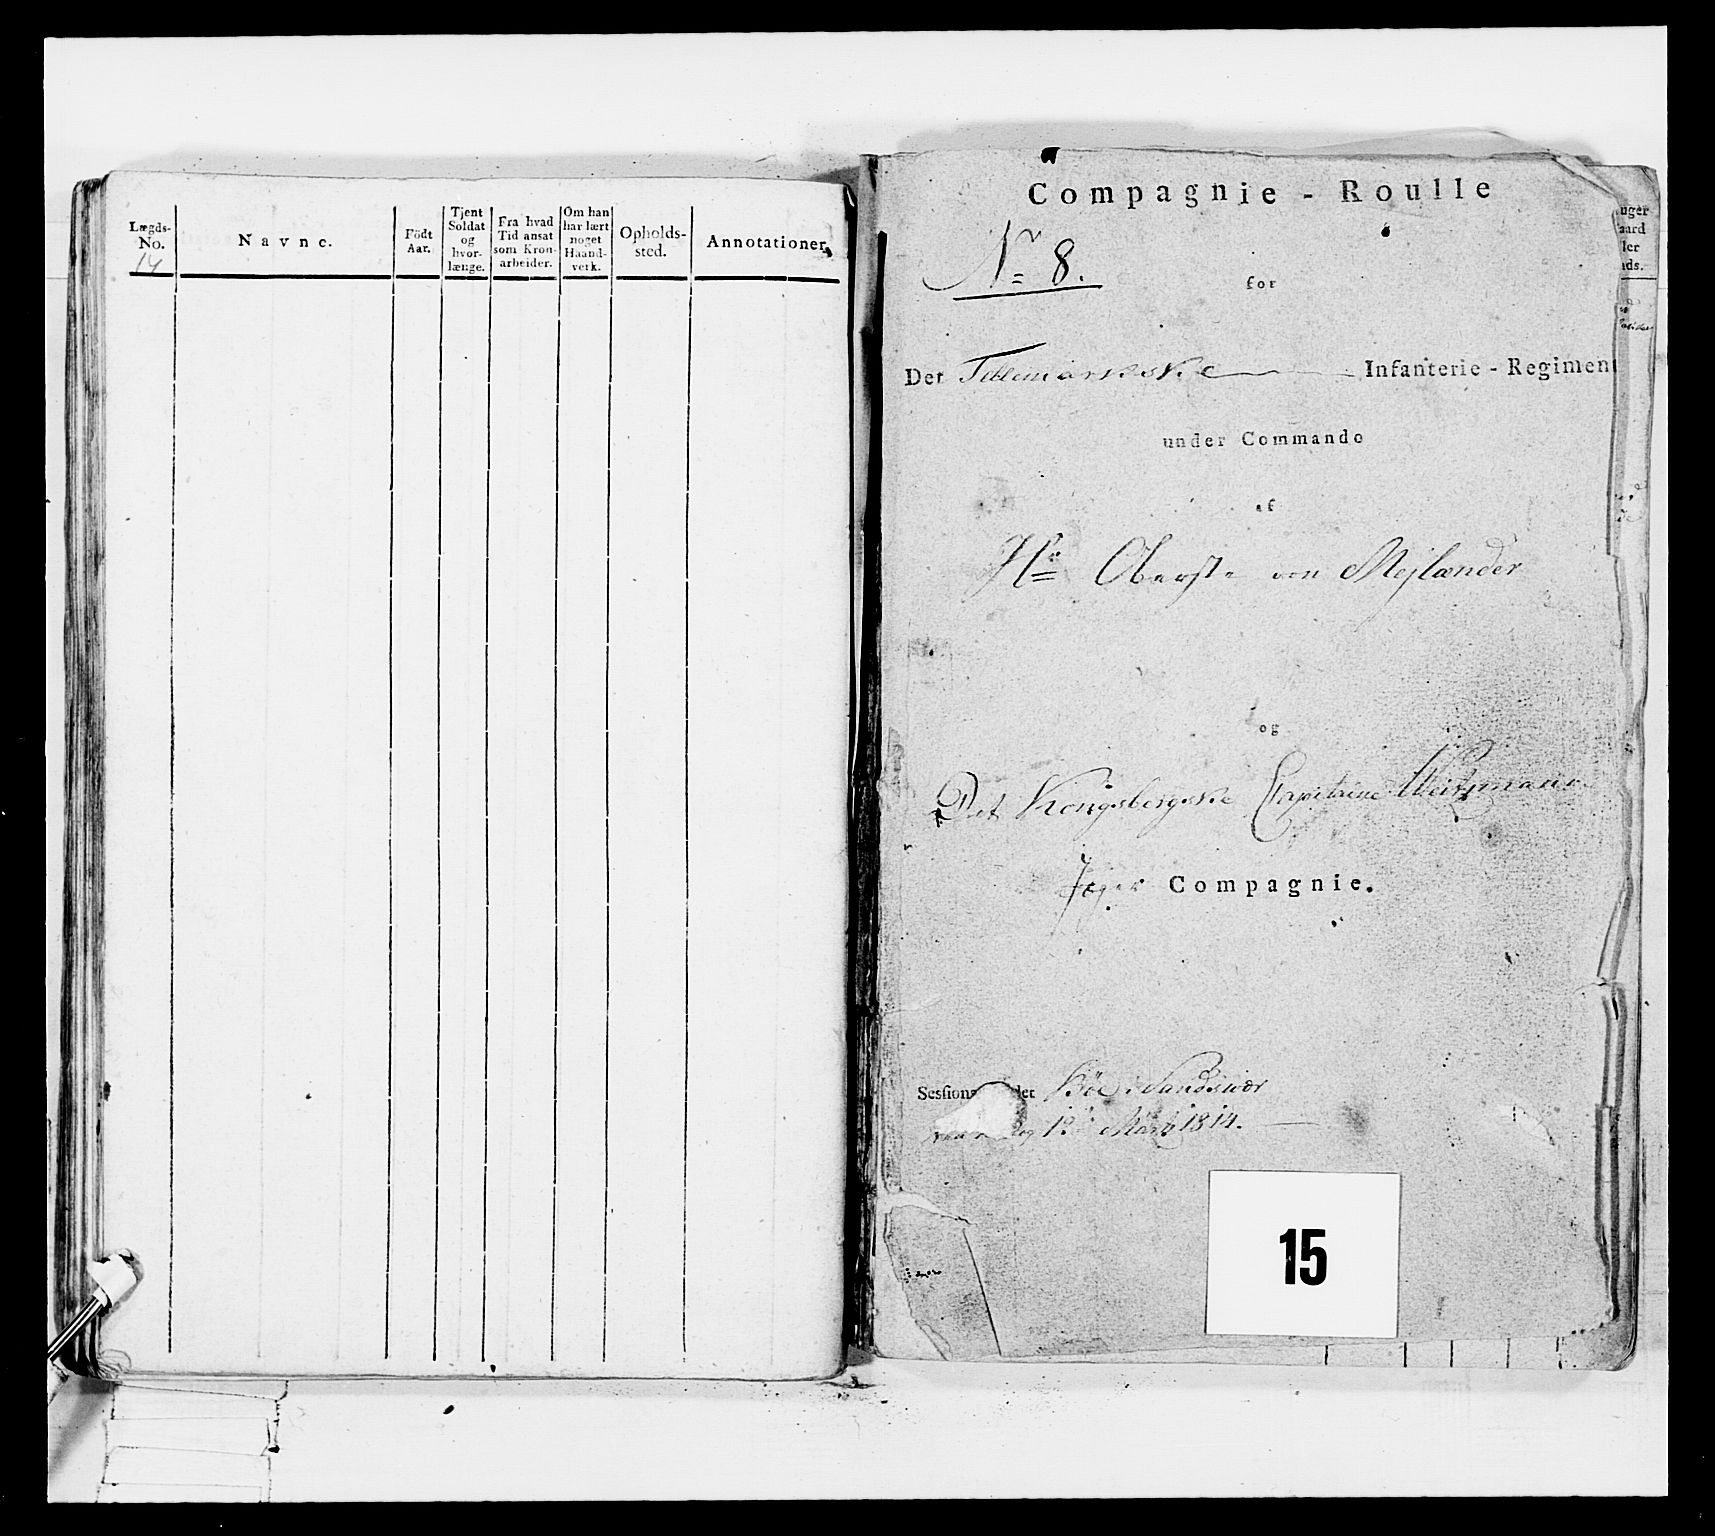 Lægds-
No.
14
Navne.
Födt
Aar.
Tjent
Soldat
og
hvor-
længe.
Fra hvad
Tid ansat
som Kron-
arbeider.
Om han
har lært
noget
Haand-
verk.
Opholds-
sted.
Annotationer.
Compagnie - Roulle
No 8.
for
Det Tellemarkske Infanterie - Regiment
under Commando
af
Hr Oberste von Mejlænder
og
Det Kongsbergske Capitaine
Jæger Compagnie.
Sessions det Böe i Sandsvær
12te Martz 1814.
15